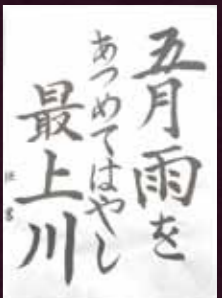 五月雨を
あつめてはやし
最上川